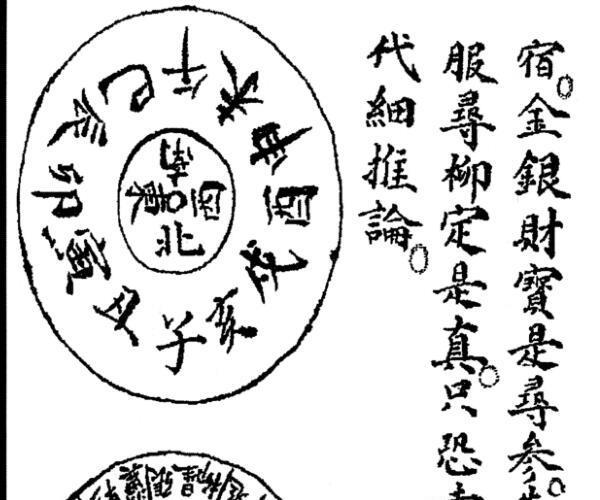 宿金銀財寶是尋參
服尋柳定是真只恐
代細推論
子丑寅卯辰巳午未申酉戌亥
東南西北